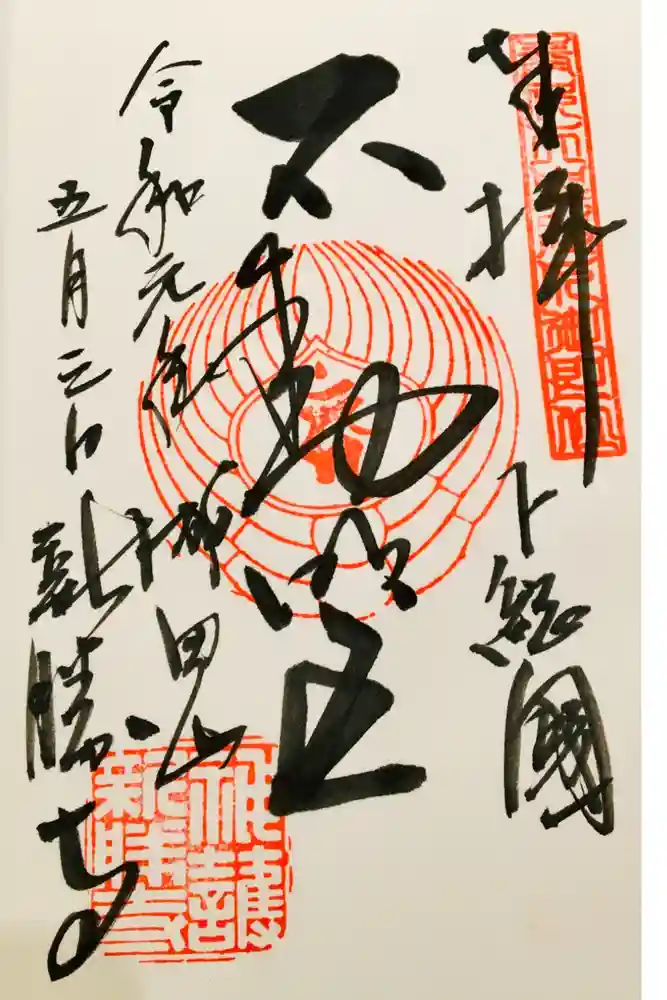 奉拝
下総國
不動明王
令和元年
成田山
五月三日
新勝寺
護
新勝寺